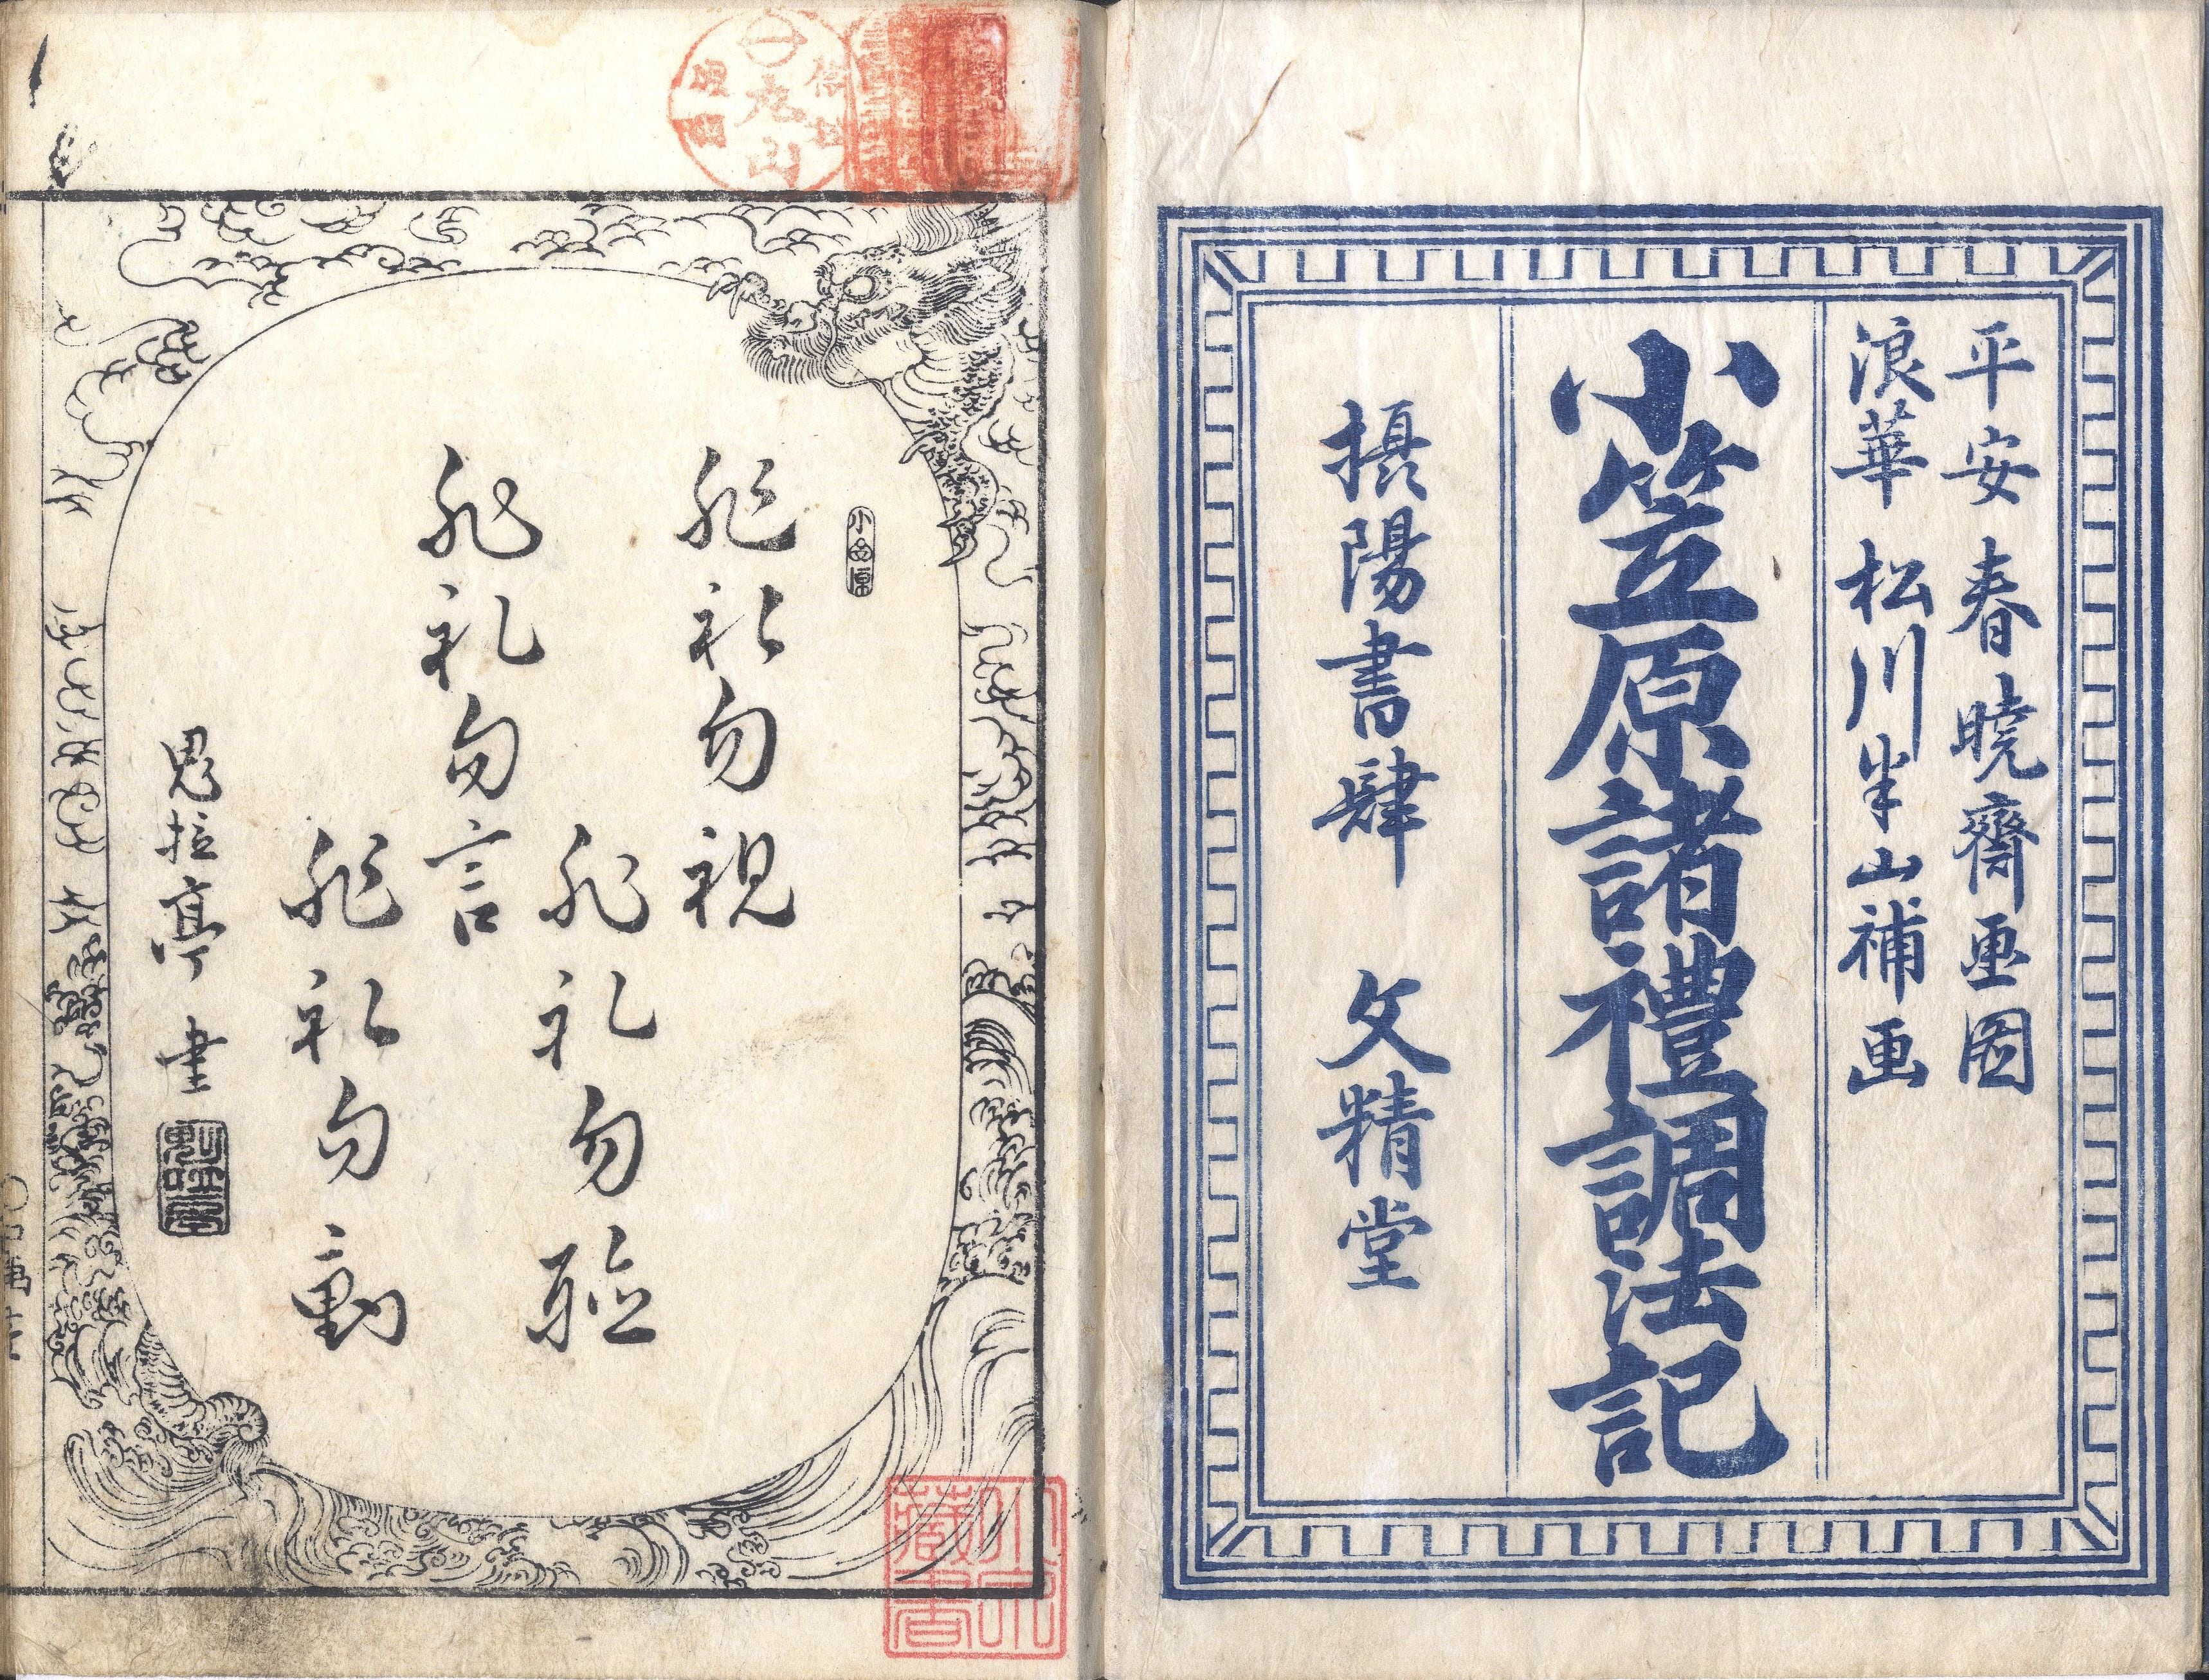 平安 春暁齋画圖
浪華 松川半山補画
小笠原諸禮調法記
摂陽書肆 文精堂
小笠原
非礼勿視
非礼勿聴
非礼勿言
非礼勿動
亭 書
藏書